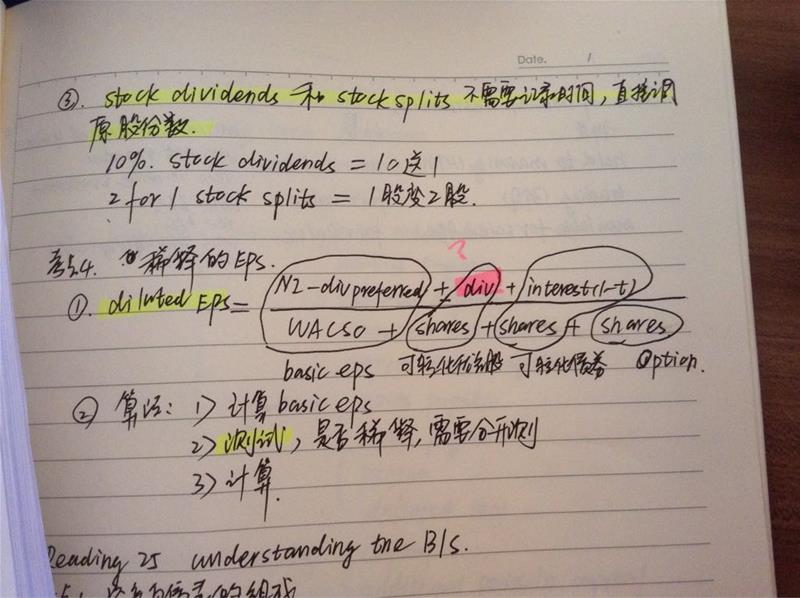 Date. /
③. stock dividends 和 stock splits 不需要记录时间,直接调
原股份数.
10%. stock dividends = 10送1
2 for 1 stock splits = 1股变2股.
考点4. 稀释的EPS.
?
①. diluted EPS = NI-div preferred + div + interest(1-t)
WACSO + shares + shares + shares
basic eps 可转化优先股 可转化债券 Option.
② 算法: 1) 计算basic eps
2) 测试, 是否稀释, 需要分开测
3) 计算.
Reading 25 understanding the B/S.
的组成